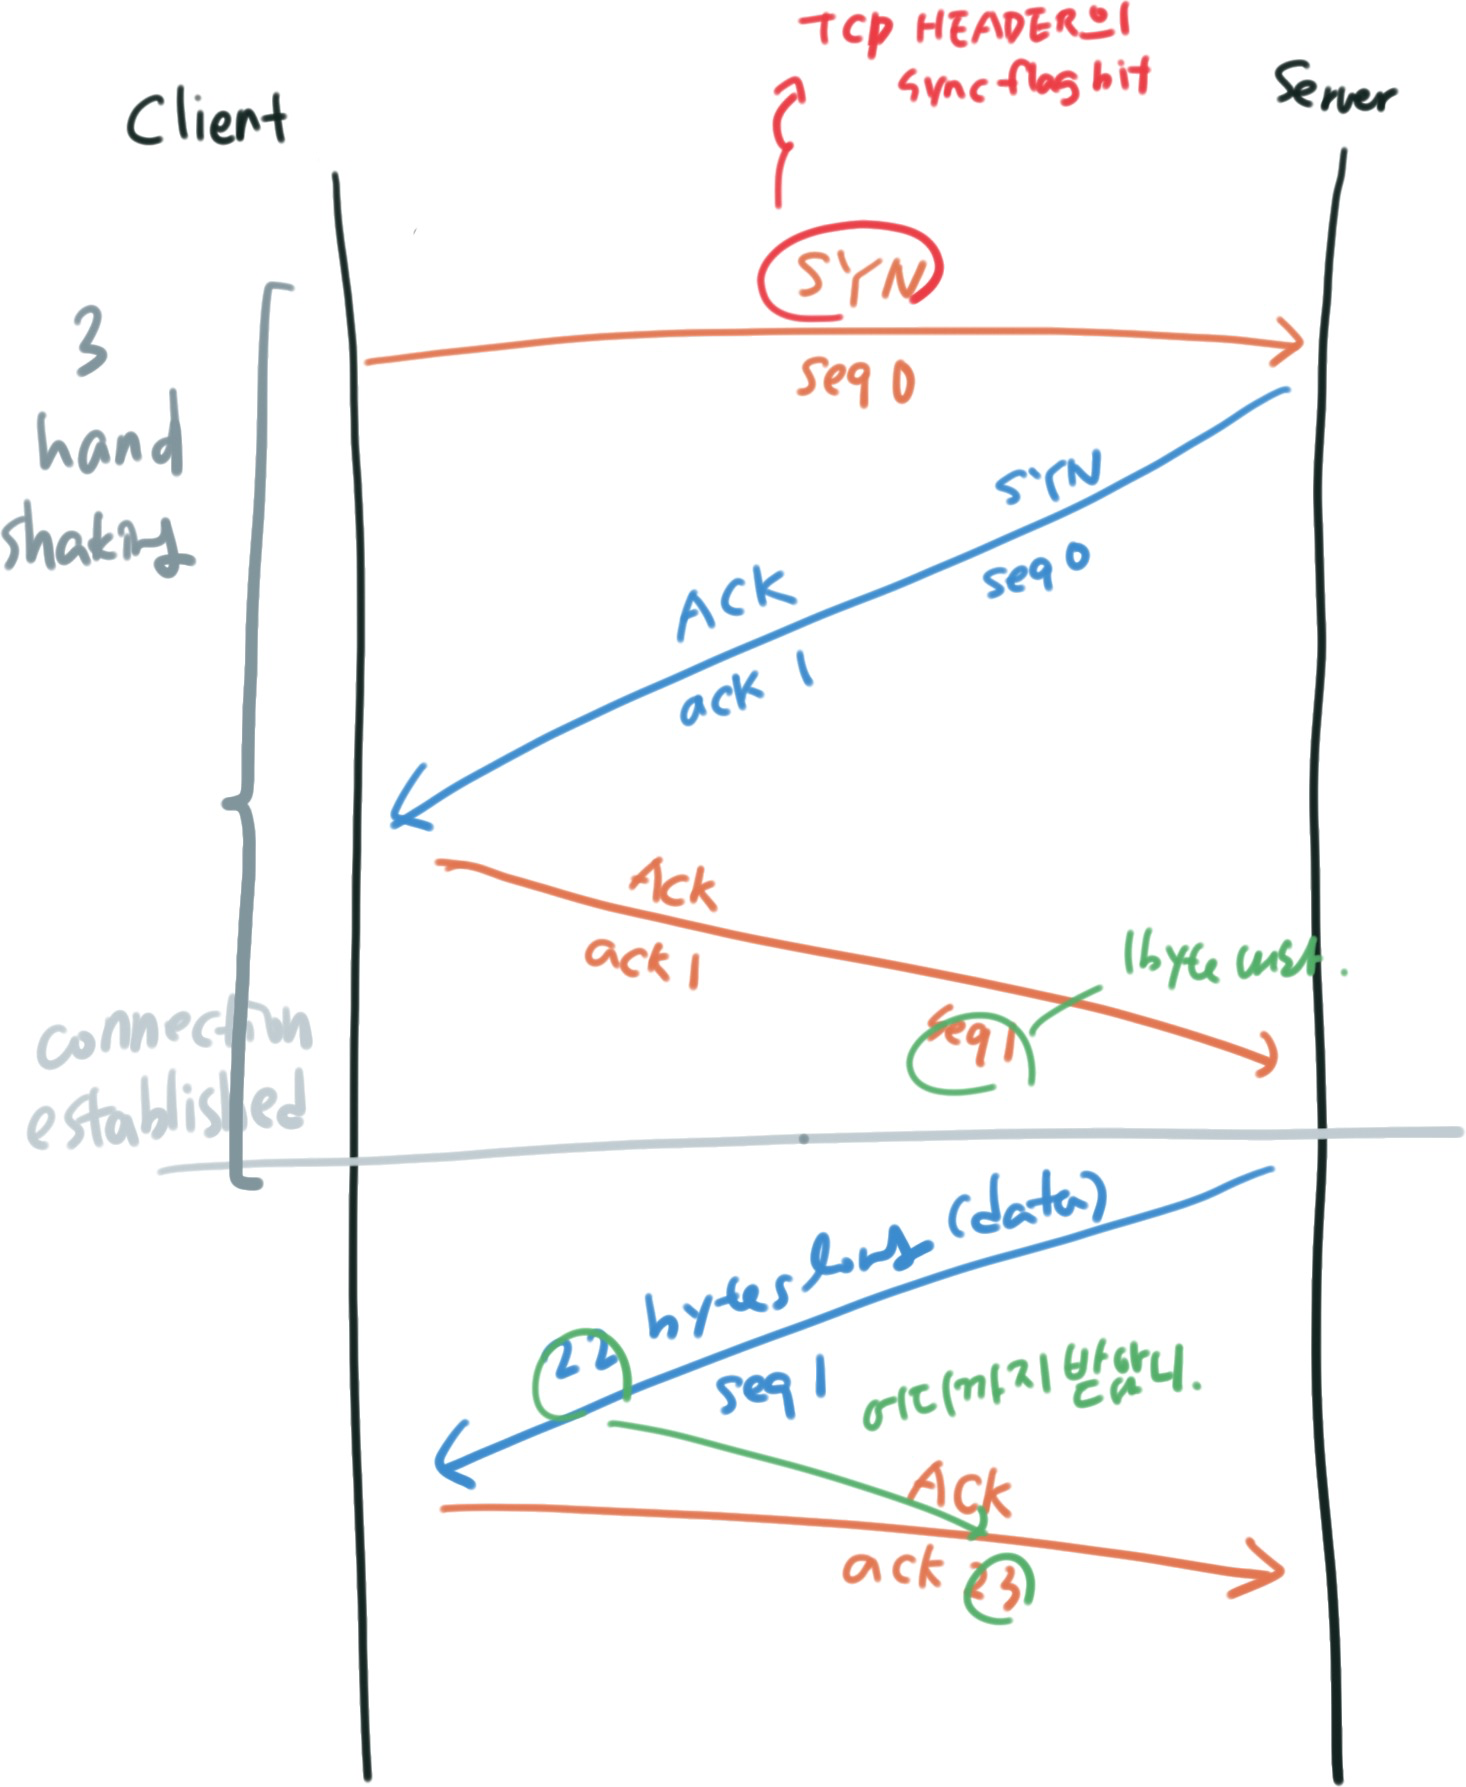 TCP HEADER의
sync flag bit
Client
Server
SYN
seq 0
3
hand
shaking
SYN
seq 0
ACK
ack 1
Ack
ack 1
1byte
seq 1
connection
established
22 bytes long (data)
seq 1
어디까지 받았니.
ACK
ack 23